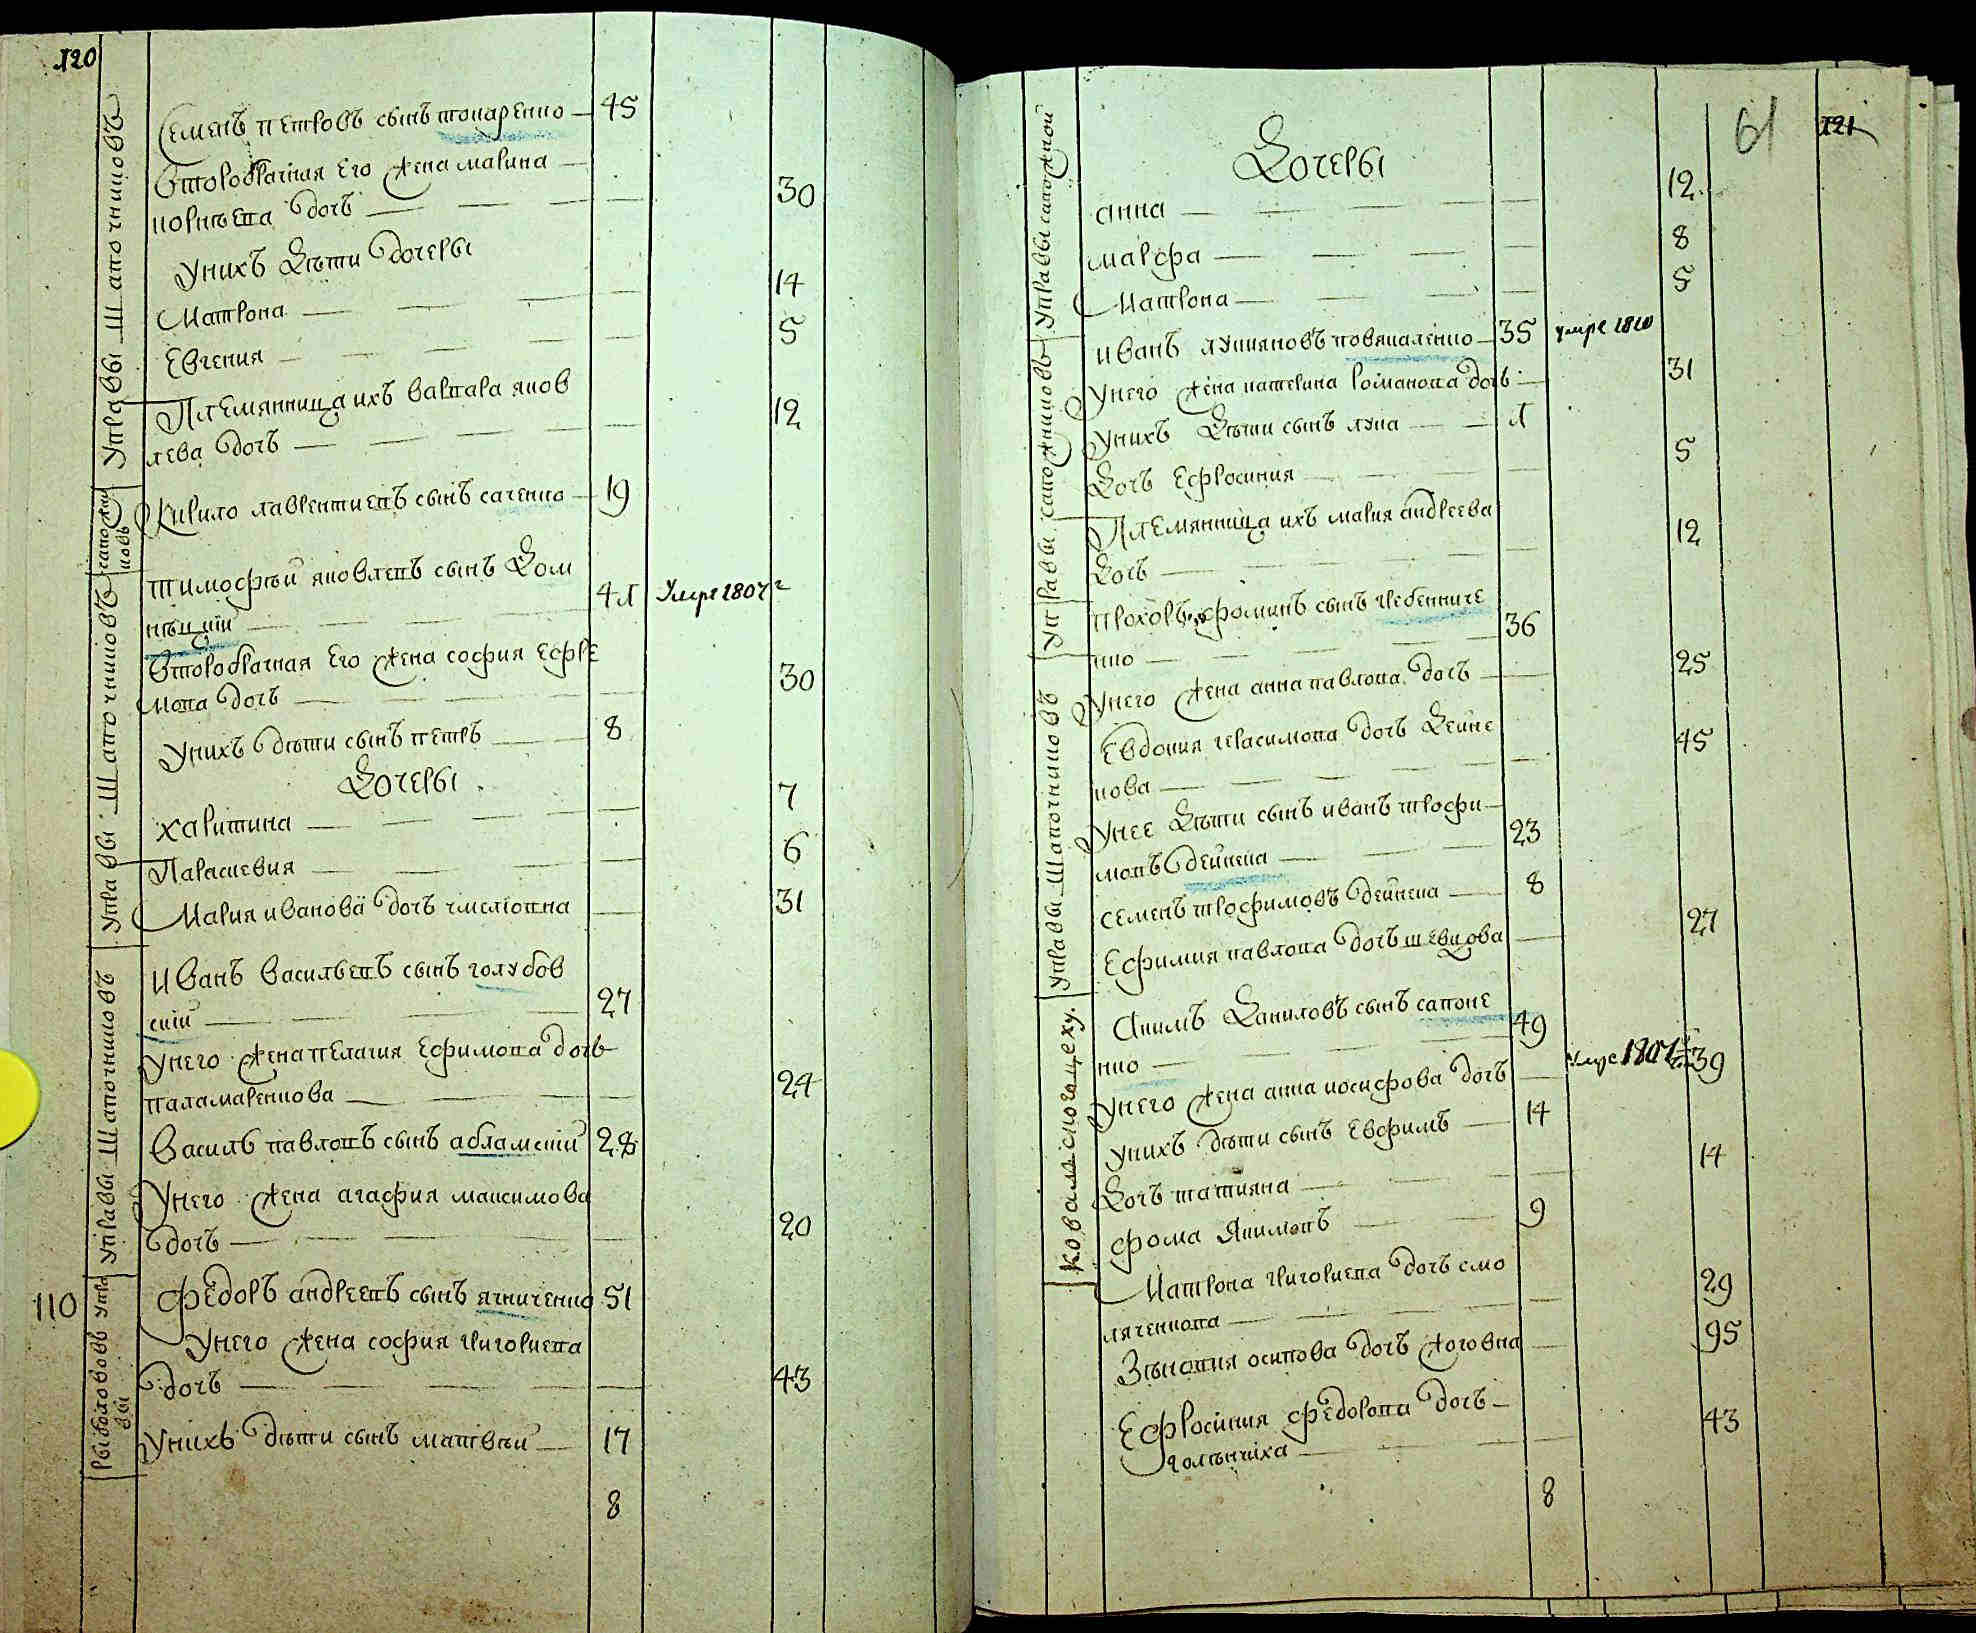 120
Управы Шапочниковъ
Семенъ Петровъ сынъ Токаренко — 45
Второбрачная его жена Марина
Корнѣева дочь — 30
У нихъ дѣти дочеры
Матрона — 14
Евгения — 5
Племянница ихъ Варвара Яков
лева дочь — 12
Сапожниковъ
Кирило Лаврентиевъ сынъ Саченко — 19
Управы Шапочниковъ
Тимофѣй Яковлевъ сынъ Дом
нѣцкій — 41 Умре 1807 г
Второбрачная его жена София Ефре
мова дочь — 30
У нихъ дѣти сынъ Петръ — 8
Дочеры
Харитина — 7
Параскевия — 6
Мария Иванова дочь — 31
Управы Шапочниковъ
Иванъ Васильевъ сынъ Голубов
скій — 27
У него жена Пелагия Ефимова дочь
Паламаренкова — 24
Василь Павловъ сынъ Абламскій 28
У него жена Агафия Максимова
дочь — 20
110
Рыболововъ Управы
Федоръ Андреевъ сынъ Ягниченко 51
У него жена София Григориева
дочь — 43
У нихъ дѣти сынъ Матвѣй — 17
8
61
121
Управы Сапожной
Дочеры
Анна — 12
Марфа — 8
Матрона — 5
Управы Сапожниковъ
Иванъ Лукияновъ — 35 умре 1810
У него жена Катерина Романова дочь — 31
У нихъ дѣти сынъ Лука — 1
Дочь Ефросиния — 5
Племянница ихъ Мария Андреева
дочь — 12
Управы Шапочниковъ
Прохоръ Фоминъ сынъ Гребенниче
нко — 36
У него жена Анна Павлова дочь — 25
Евдокия Герасимова дочь Дейне
кова — 45
У нее дѣти сынъ Иванъ Трофи
мовъ Дейнека — 23
Семенъ Трофимовъ Дейнека — 8
Ефимия Павлова дочь Шевцова — 27
Ковальского цеху.
Якимъ Даниловъ сынъ Сапоне
нко — 49
У него жена Анна Иосифова дочь — умре 1807 г 39
У нихъ дѣти сынъ Евфимъ — 14
Дочь Татияна — 14
Фома Якимовъ — 9
Матрона Григориева дочь Смо
ляченкова — 29
Зѣновия Осипова дочь — 95
Ефросиния Федорова дочь
— 43
8